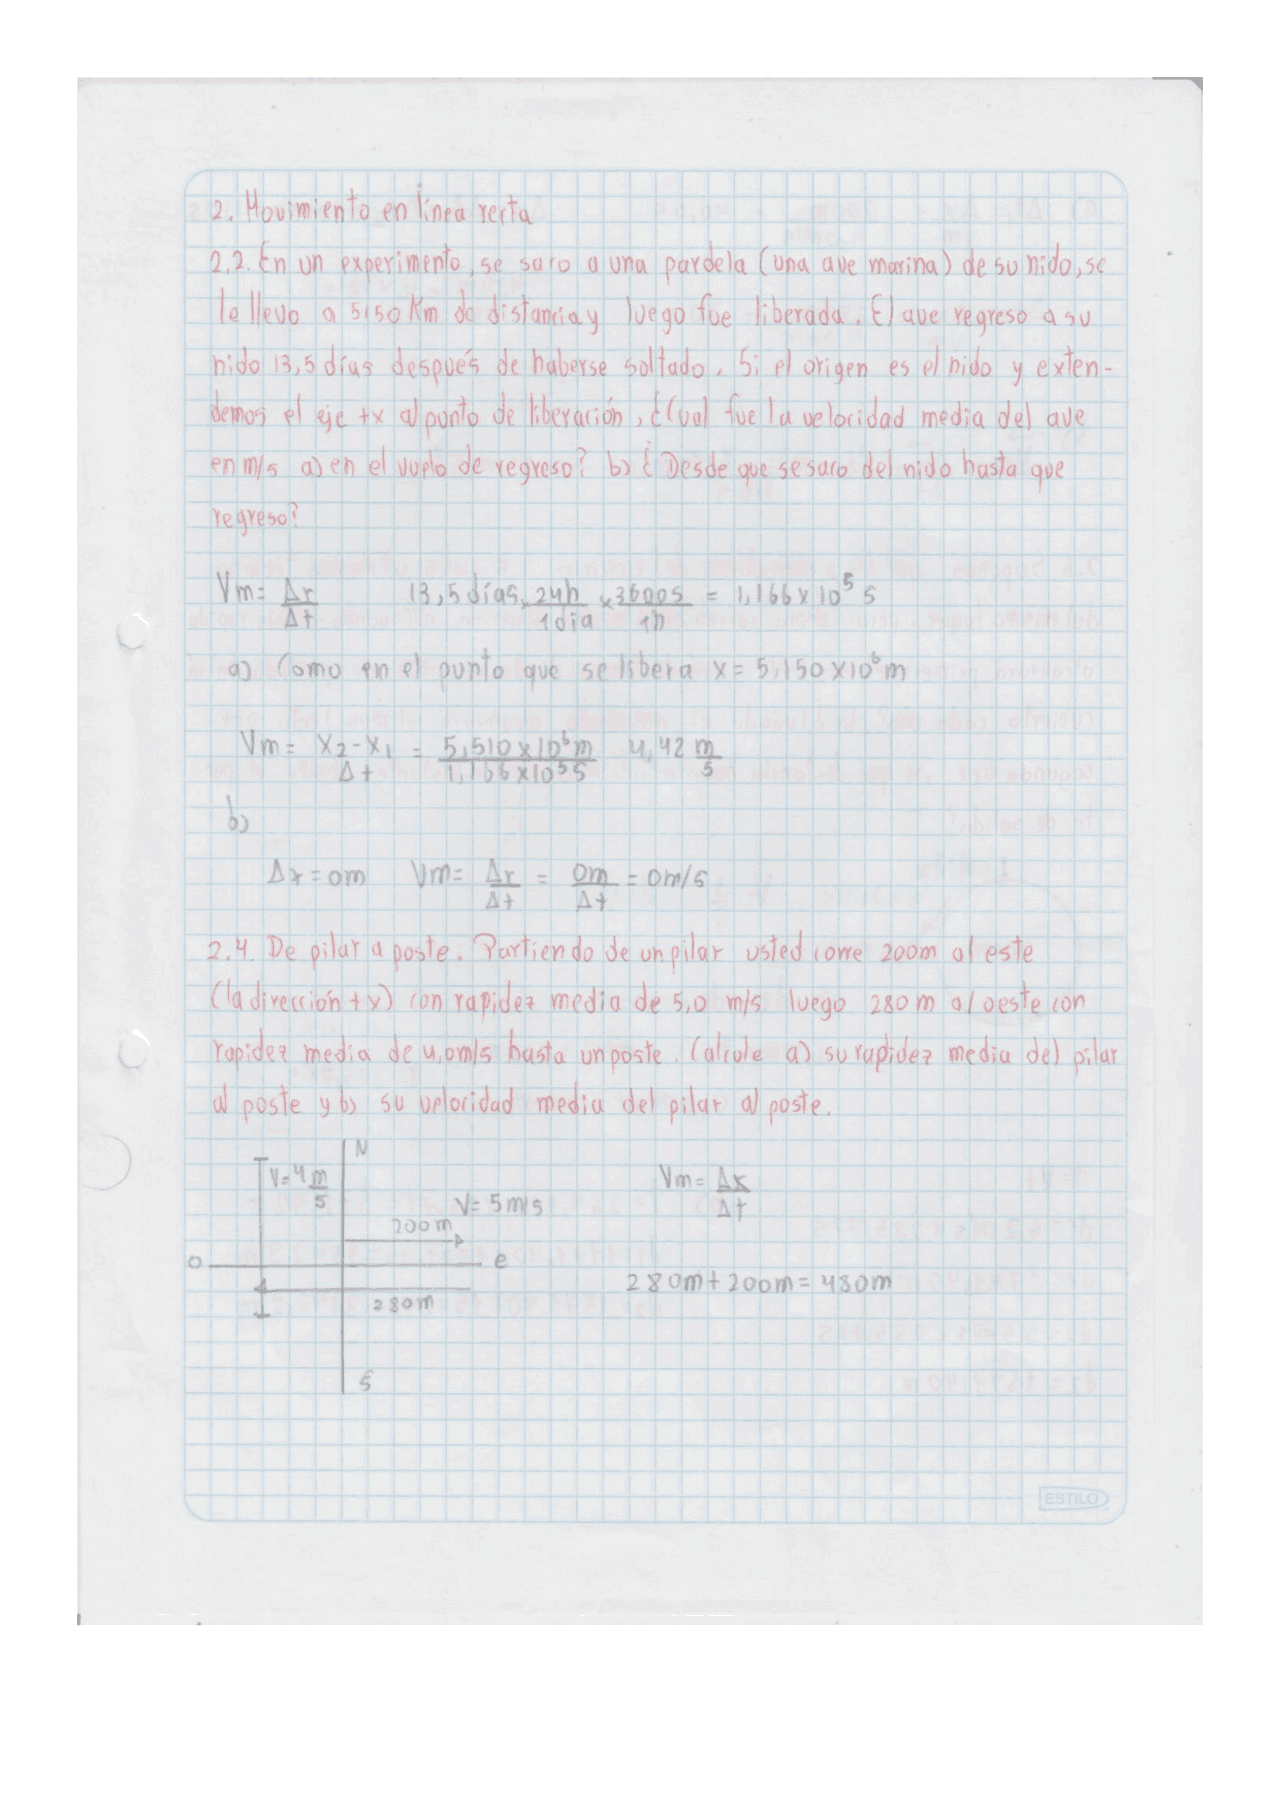 2. Movimiento en línea recta
2.2. En un experimento, se saco a una pardela (una ave marina) de su nido, se
le llevo a 5150 Km de distancia y luego fue liberada. El ave regreso a su
nido 13,5 días después de haberse soltado. Si el origen es el nido y exten-
demos el eje +x al punto de liberación, ¿Cual fue la velocidad media del ave
en m/s a) en el vuelo de regreso? b) ¿Desde que se saco del nido hasta que
regreso?
Vm = Δr/Δt 13,5 días x 24h/1dia x 3600s/1h = 1,166 x 10^5 s
a) Como en el punto que se libera x = 5,150 x 10^6 m
Vm = X2-X1/Δt = 5,510 x 10^6 m/1,166 x 10^5 s 4,42 m/s
b)
Δx = 0m Vm = Δr/Δt = 0m/Δt = 0m/s
2.4. De pilar a poste. Partiendo de un pilar usted corre 200m al este
(la dirección +x) con rapidez media de 5,0 m/s luego 280 m al oeste con
rapidez media de 4,0m/s hasta un poste. Calcule a) su rapidez media del pilar
al poste y b) su velocidad media del pilar al poste.
N
V=4 m/s
Vm = Δx/Δt
V= 5m/s
200m
o e
280m+200m=480m
280m
S
ESTILO